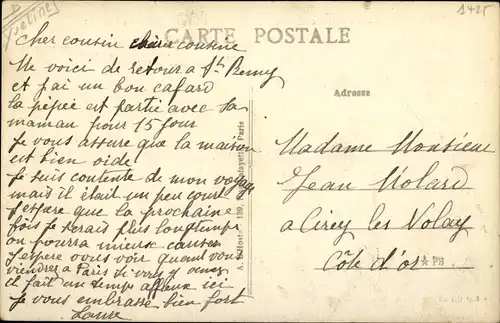 Yvelines
1425
CARTE POSTALE
Cher cousin chère cousine
Me voici de retour a St Remy
et j'ai un bon cafard
la pépée est partie avec sa
maman pour 15 jour
je vous assure que la maison
est bien vide
je suis contente de mon voyage
mais il était un peu court
j'espère que la prochaine
fois je serais plus longtemps
on pourra mieux causer
j'espere vous voir quand vous
viendrez a Paris si vous y venez
il fait un temps affreux ici
je vous embrasse bien fort
Laure
A. L'Hoste - 139, Lafayette - Paris
Adresse
Madame Monsieur
Jean Molard
a Cirey les Nolay
Côte d'or